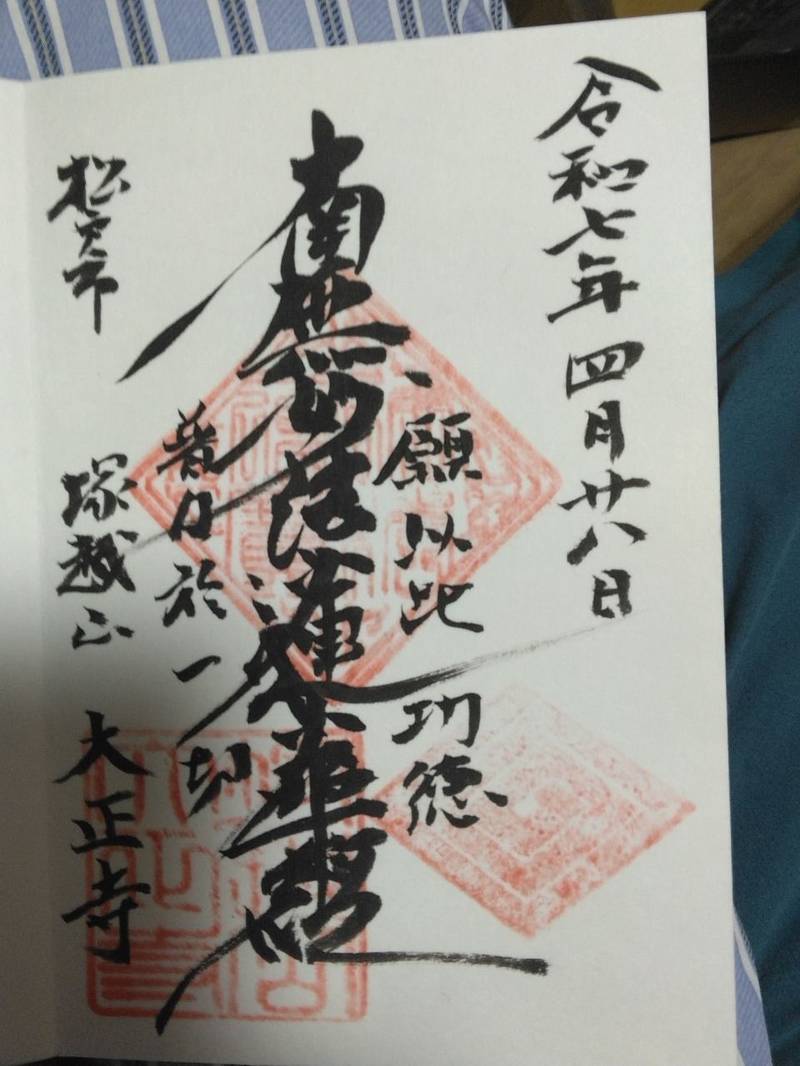 令和七年四月廿八日
願以此功徳
南無妙法蓮華経
普及於一切
松戸市 塚越山 大正寺